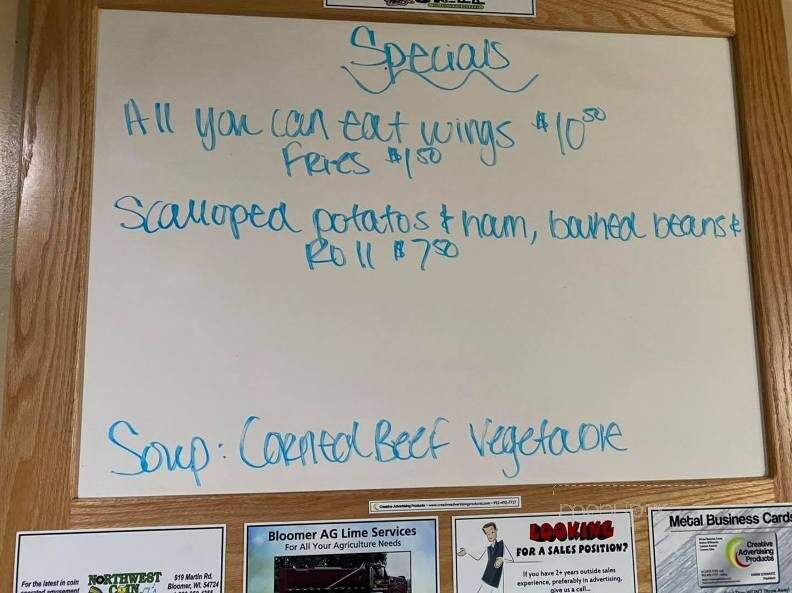 Specials
All you can eat wings $10.50
Fries $1.50
Scalloped potatos & ham, bakned beans &
Roll $7.50
Soup: Corned Beef Vegetable
Creative Advertising Products • www.creativeadvertisingproducts.com • 952-492-7727
For the latest in coin
operated amusement
NORTHWEST
COIN
919 Martin Rd.
Bloomer, WI. 54724
Bloomer AG Lime Services
For All Your Agriculture Needs
LOOKING
FOR A SALES POSITION?
If you have 2+ years outside sales
experience, preferably in advertising,
give us a call...
Metal Business Cards
Creative
Advertising
Products